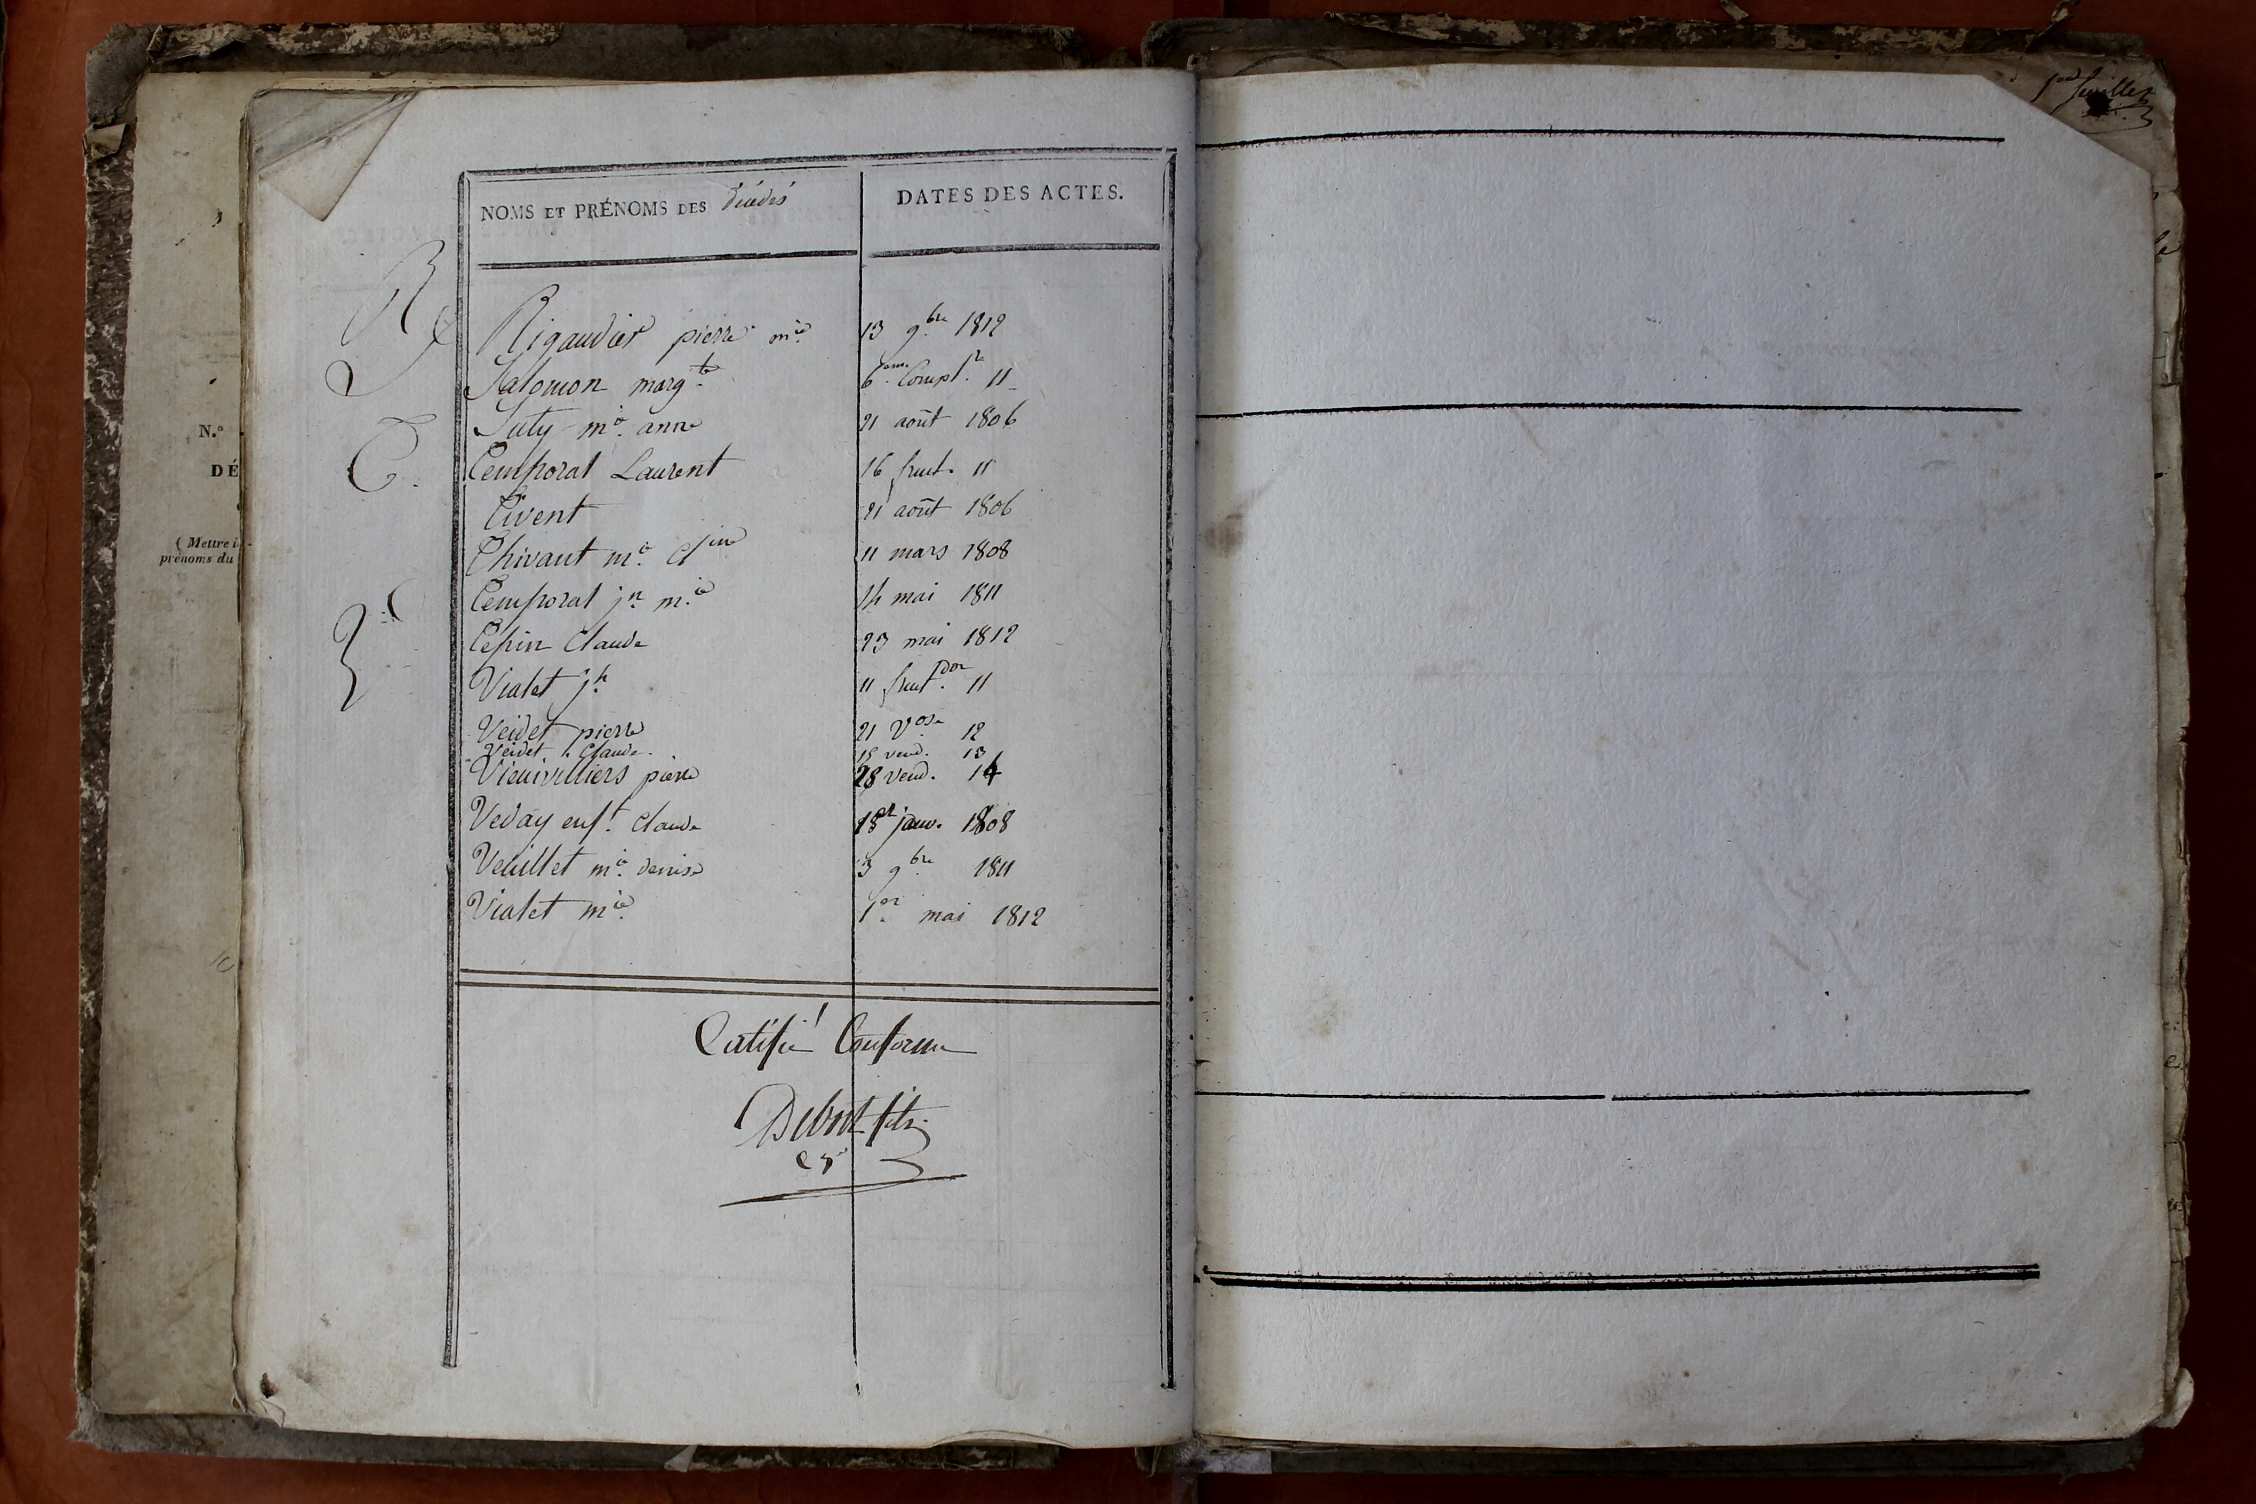 NOMS ET PRÉNOMS DES décédés
DATES DES ACTES.
R
Rigaudier pierre mie 13 9bre 1812
S
Salomon margte 6eme Complre 11
Suty mie anne 21 août 1806
T.
Temporal Laurent 16 fruct. 11
Tivent 21 août 1806
Thivant mie Cline 11 mars 1808
Temporal jn mie 14 mai 1811
Tepin Claude 23 mai 1812
V
Vialet jh 11 fructdor 11
Veidet pierre 21 Vose 12
Veidet Claude 15 vend. 13
pierre 28 vend. 14
Veday enft Claude 18 janv. 1808
Veuillet mie denise 3 9bre 1811
Vialet mie 1er mai 1812
Certifié Conforme
fils
N.°
DÉ
( Mettre i
prénoms du
feuillet